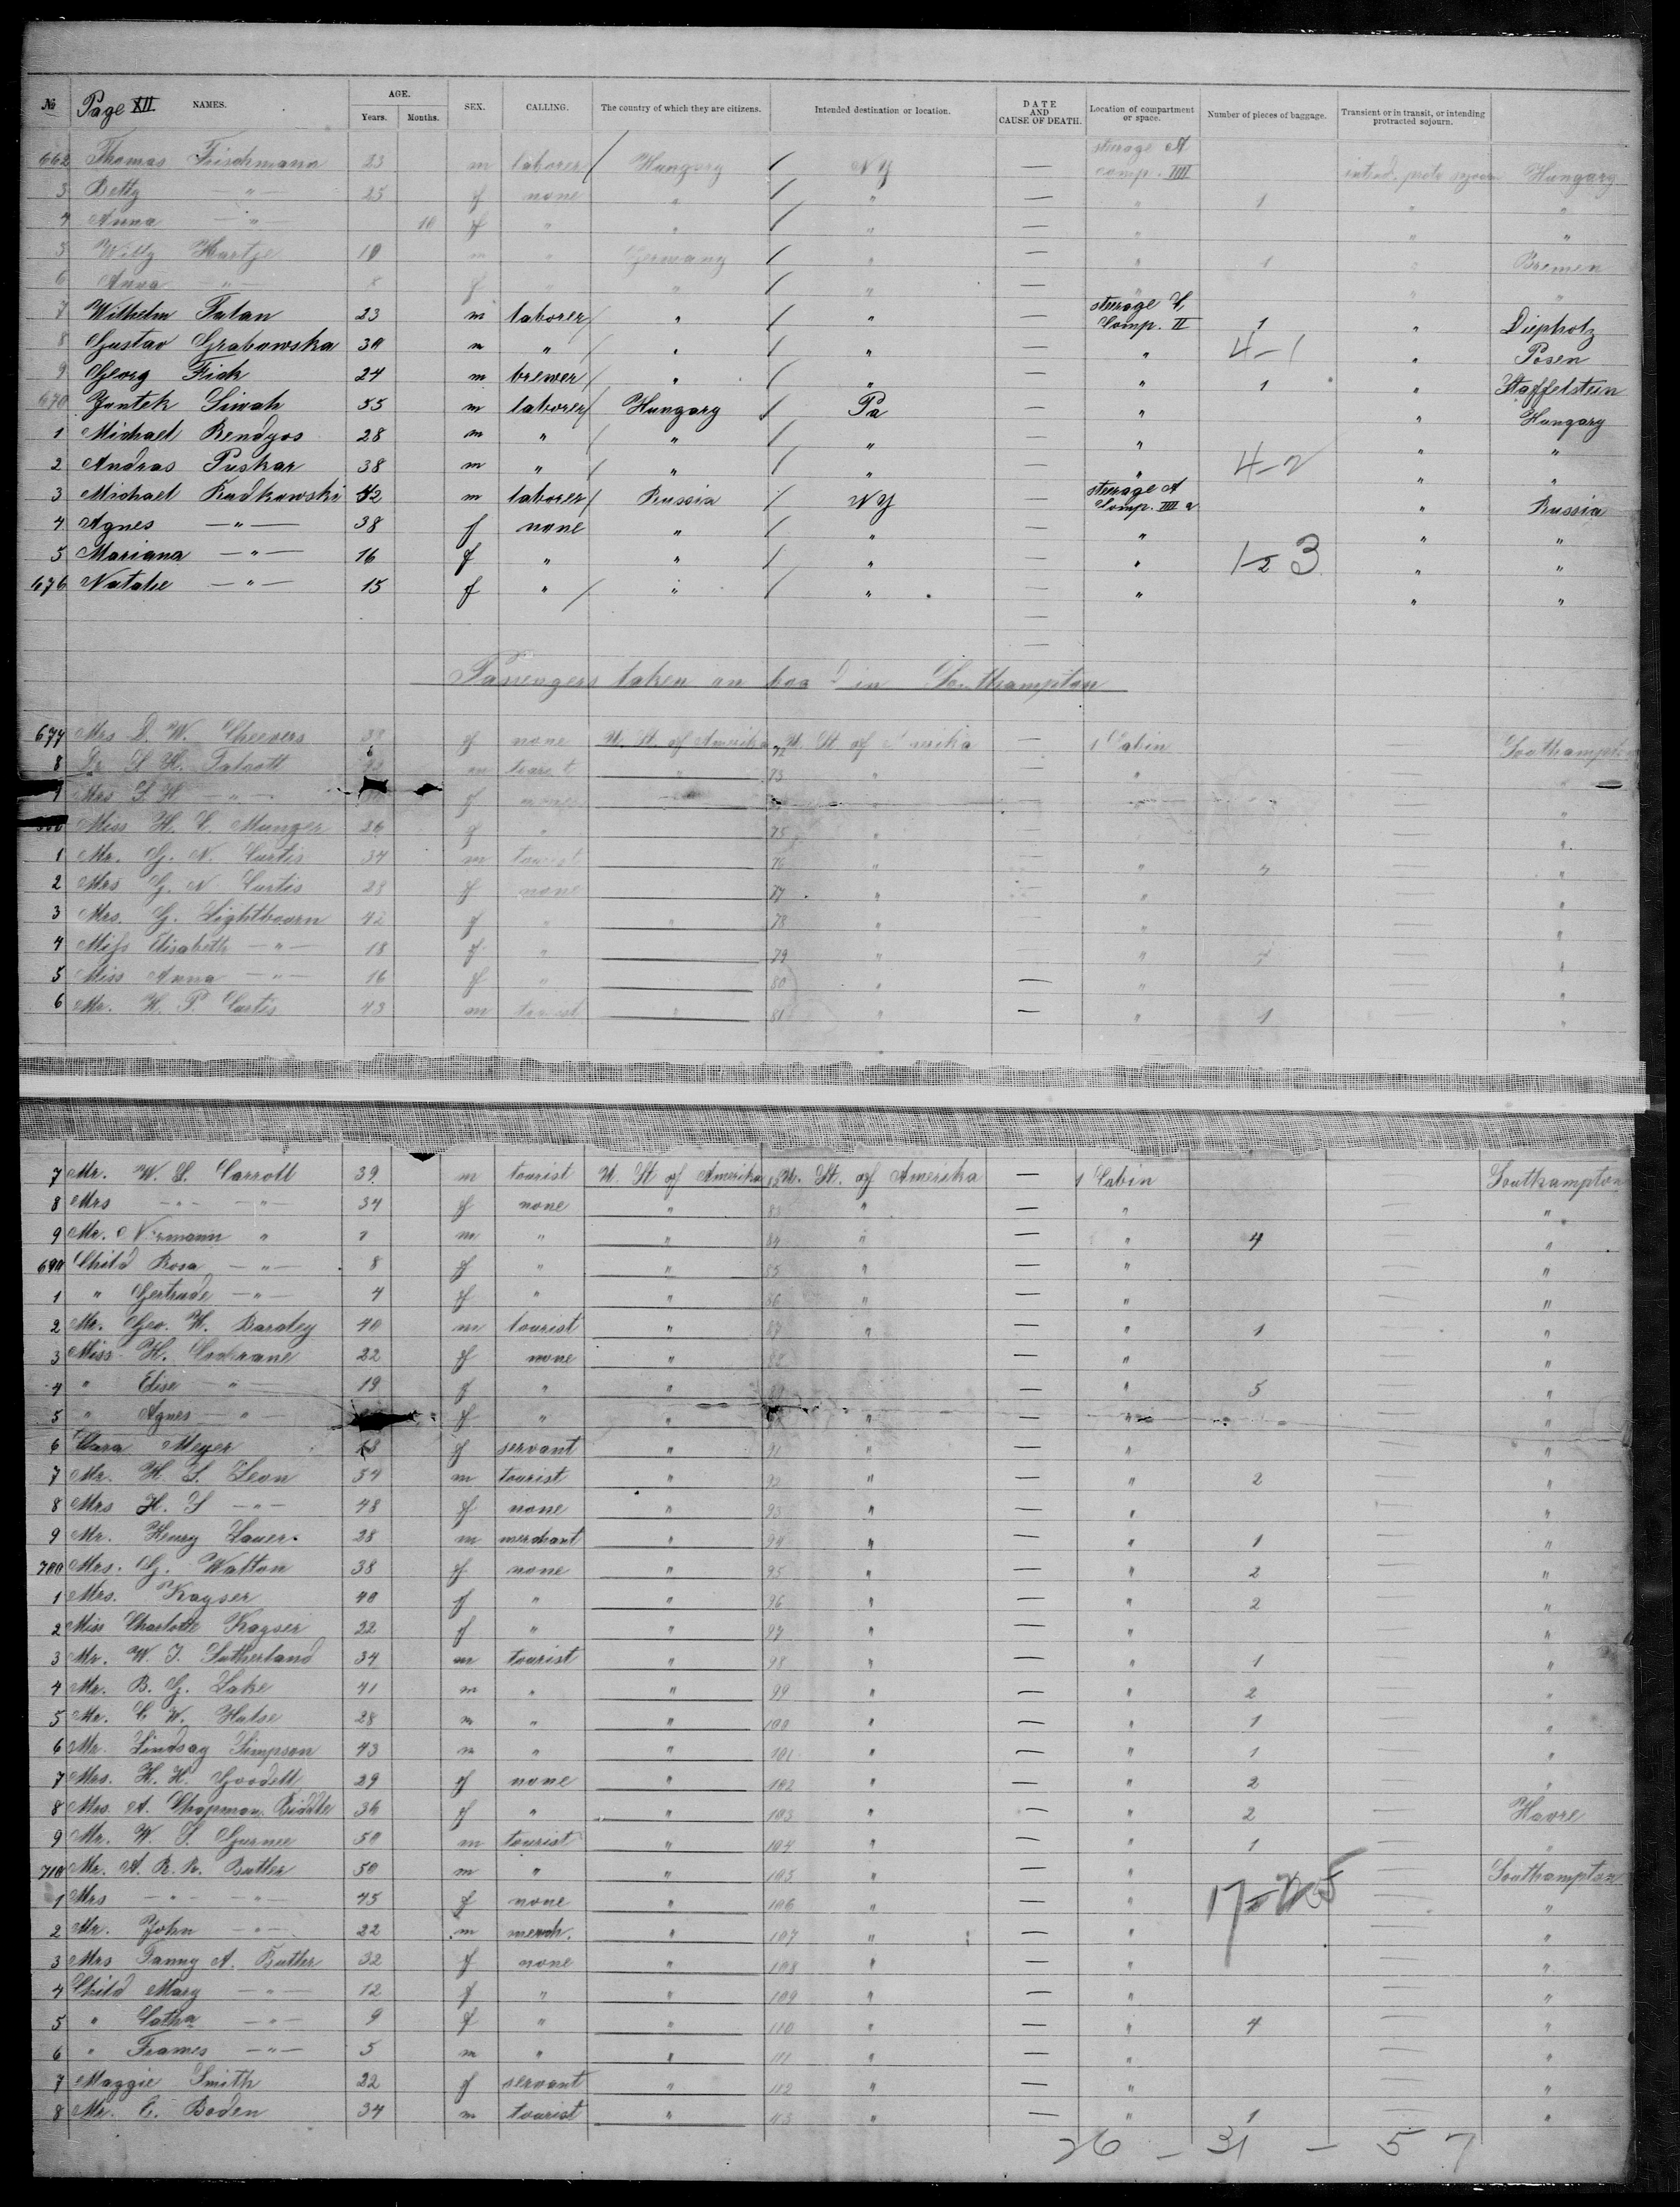 № Page XII. NAMES. AGE. Years. Months. SEX. CALLING. The country of which they are citizens. Intended destination or location. DATE AND CAUSE OF DEATH. Location of compartment or space. Number of pieces of baggage. Transient or in transit, or intending protracted sojourn.
662 Thomas Frischmann 23 m laborer / Hungary / NY — sturage A comp. IIII Hungary
3 Betty —"— 25 f none " / " — " 1 " "
4 Anna —"— 10 f " " / " — " " "
5 Willy Hartje 10 m " Germany / " — " 1 " Bremen
6 Anna —"— 8 f " " / " — " " "
7 Wilhelm Tulan 23 m laborer / " / " — sturage H, Comp. II 1 " Diepholz
8 Gustav Grabowska 30 m " / " / " — " 4-1 " Posen
9 Georg Fick 24 m brewer / " / " — " 1 " Staffelstein
670 Jantek Siwah 55 m laborer / Hungary / Pa — " " Hungary
1 Michael Bendyos 28 m " / " / " — " " "
2 Andras Puskar 38 m " / " / " — " 4-2 " "
3 Michael Rudkowski 42 m laborer / Russia / NY — sturage A Comp. IIII a " Russia
4 Agnes —"— 38 f none " / " — " " "
5 Mariana —"— 16 f " " / " — " 1-2 3 " "
676 Natalie —"— 15 f " / " / " — " " "
Passengers taken on board in Southampton
677 Mrs D. W. Cheevers 38 f none U. St. of Amerika 72 U. St. of Amerika — 1 Cabin Southampton
8 Dr S H. Talcott m tourist " 73 " — " "
9 Mrs S H —"— f none — "
Miss H. C. Munger 26 f " 75 " — "
1 Mr. G. N. Curtis 34 m tourist 76 " — " 7 "
2 Mrs G. N Curtis 23 f none 77 " — " "
3 Mrs. G. Lightbourn 42 f " " 78 " — " "
4 Miss Elisabeth —"— 18 f " 79 " — " "
5 Miss Anna —"— 16 f " 80 " — " "
6 Mr. H. P. Curtis 43 m tourist " 81 " — " 1 — "
7 Mr. W. S. Carroll 39 m tourist U. St of Amerika U. St. of Amerika — 1 Cabin Southampton
8 Mrs —"— —"— 34 f none " 83 " — " — "
9 Mr. Normann " m " " 84 " — " 4 — "
690 Child Rosa —"— 8 f " " 85 " — " — "
1 " Gertrude —"— 4 f " " 86 " — " "
2 Mr. Geo. H. Baraley 40 m tourist " 87 " — " 1 — "
3 Miss H. Cochrane 22 f none " — " — "
4 " Elise —"— 19 f " " — " 5 — "
5 " Agnes —"— f " " " — " — "
6 Clara Meyer f servant " 91 " — " — "
7 Mr. H. S. Leon 54 m tourist " 92 " — " 2 — "
8 Mrs H. S —"— 48 f none " 93 " — " — "
9 Mr. Henry Lauer. 28 m merchant " 94 " — " 1 — "
700 Mrs. G. Walton 38 f none " 95 " — " 2 — "
1 Mrs. Kayser 40 f " " 96 " — " 2 — "
2 Miss Charlotte Kayser 22 f " " 97 " — " — "
3 Mr. W. J. Sutherland 34 m tourist " 98 " — " 1 — "
4 Mr. B. G. Lake 41 m " " 99 " — " 2 — "
5 Mr. C W. Hulse 28 m " " 100 " — " 1 — "
6 Mr. Lindsay Simpson 43 m " " 101 " — " 1 — "
7 Mrs. H. H. Goodell 29 f none " 102 " — " 2 — "
8 Mrs. A. Chapman Biddle 36 f " " 103 " — " 2 — Havre
9 Mr. W. S. Gurnee 50 m tourist " 104 " — " 1 — "
710 Mr. A. R. R. Butler 50 m " " 105 " — " — Southampton
1 Mrs —"— —"— 45 f none " 106 " — " — "
2 Mr. John —"— 22 m merch. " 107 " — " — "
3 Mrs Fanny A. Butler 32 f none " 108 " — " — "
4 Child Mary —"— 12 f " " 109 " — " — "
5 " Catha —"— 9 f " " 110 " — " 4 — "
6 " Frames —"— 5 m " " 111 " — " — "
7 Maggie Smith 22 f servant " 112 " — " — "
8 Mr. C. Boden 34 m tourist " 113 " — " 1 — "
26 - 31 - 57